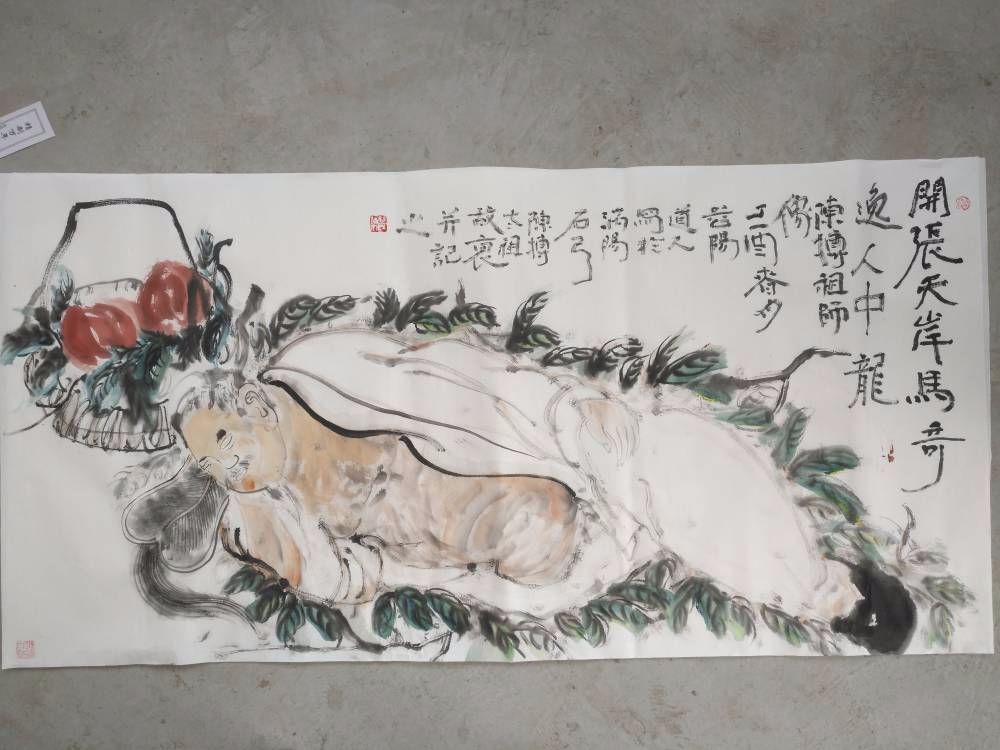 開張天岸馬奇
逸人中龍
陳摶祖師
像
丁酉春夕
岱陽
道人
寫於
渦陽
石弓
陳摶
太祖
故裏
并記
之